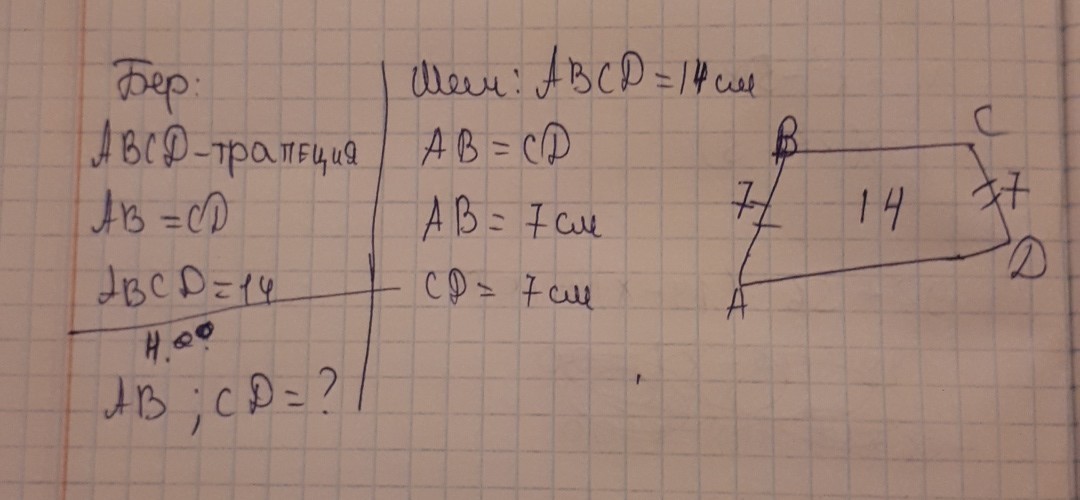 Бер:
ABCD-трапеция
AB = CD
ABCD=14
Н.
AB ; CD = ?
Шеш: ABCD = 14 см
AB = CD
AB = 7 см
CD = 7 см
B
C
7
14
7
A
D